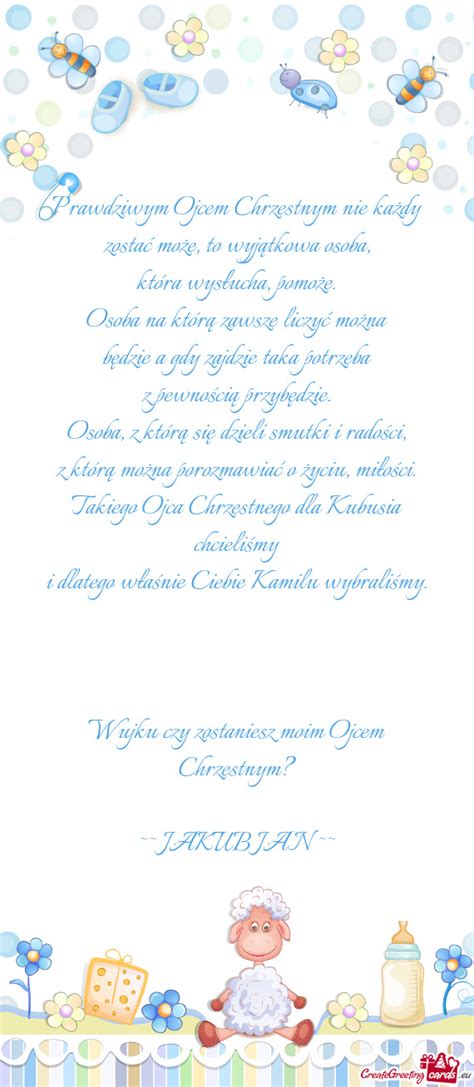 Prawdziwym Ojcem Chrzestnym nie każdy
zostać może, to wyjątkowa osoba,
która wysłucha, pomoże.
Osoba na którą zawsze liczyć można
będzie a gdy zajdzie taka potrzeba
z pewnością przybędzie.
Osoba, z którą się dzieli smutki i radości,
z którą można porozmawiać o życiu, miłości.
Takiego Ojca Chrzestnego dla Kubusia
chcieliśmy
i dlatego właśnie Ciebie Kamilu wybraliśmy.
Wujku czy zostaniesz moim Ojcem
Chrzestnym?
~~JAKUB JAN ~~
CreateGreetingcards.eu